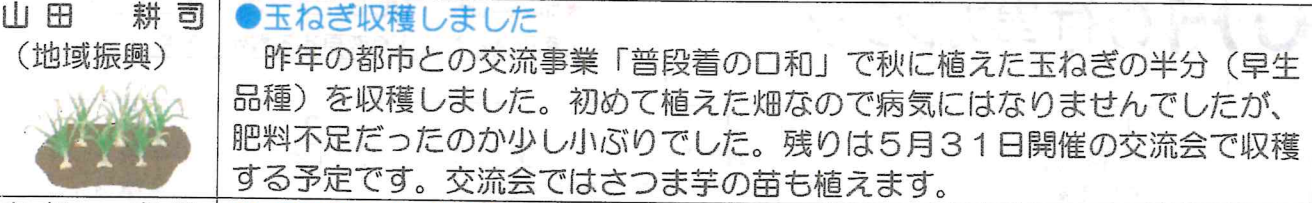 山田　耕司
（地域振興）
●玉ねぎ収穫しました
　昨年の都市との交流事業「普段着の口和」で秋に植えた玉ねぎの半分（早生
品種）を収穫しました。初めて植えた畑なので病気にはなりませんでしたが、
肥料不足だったのか少し小ぶりでした。残りは５月３１日開催の交流会で収穫
する予定です。交流会ではさつま芋の苗も植えます。